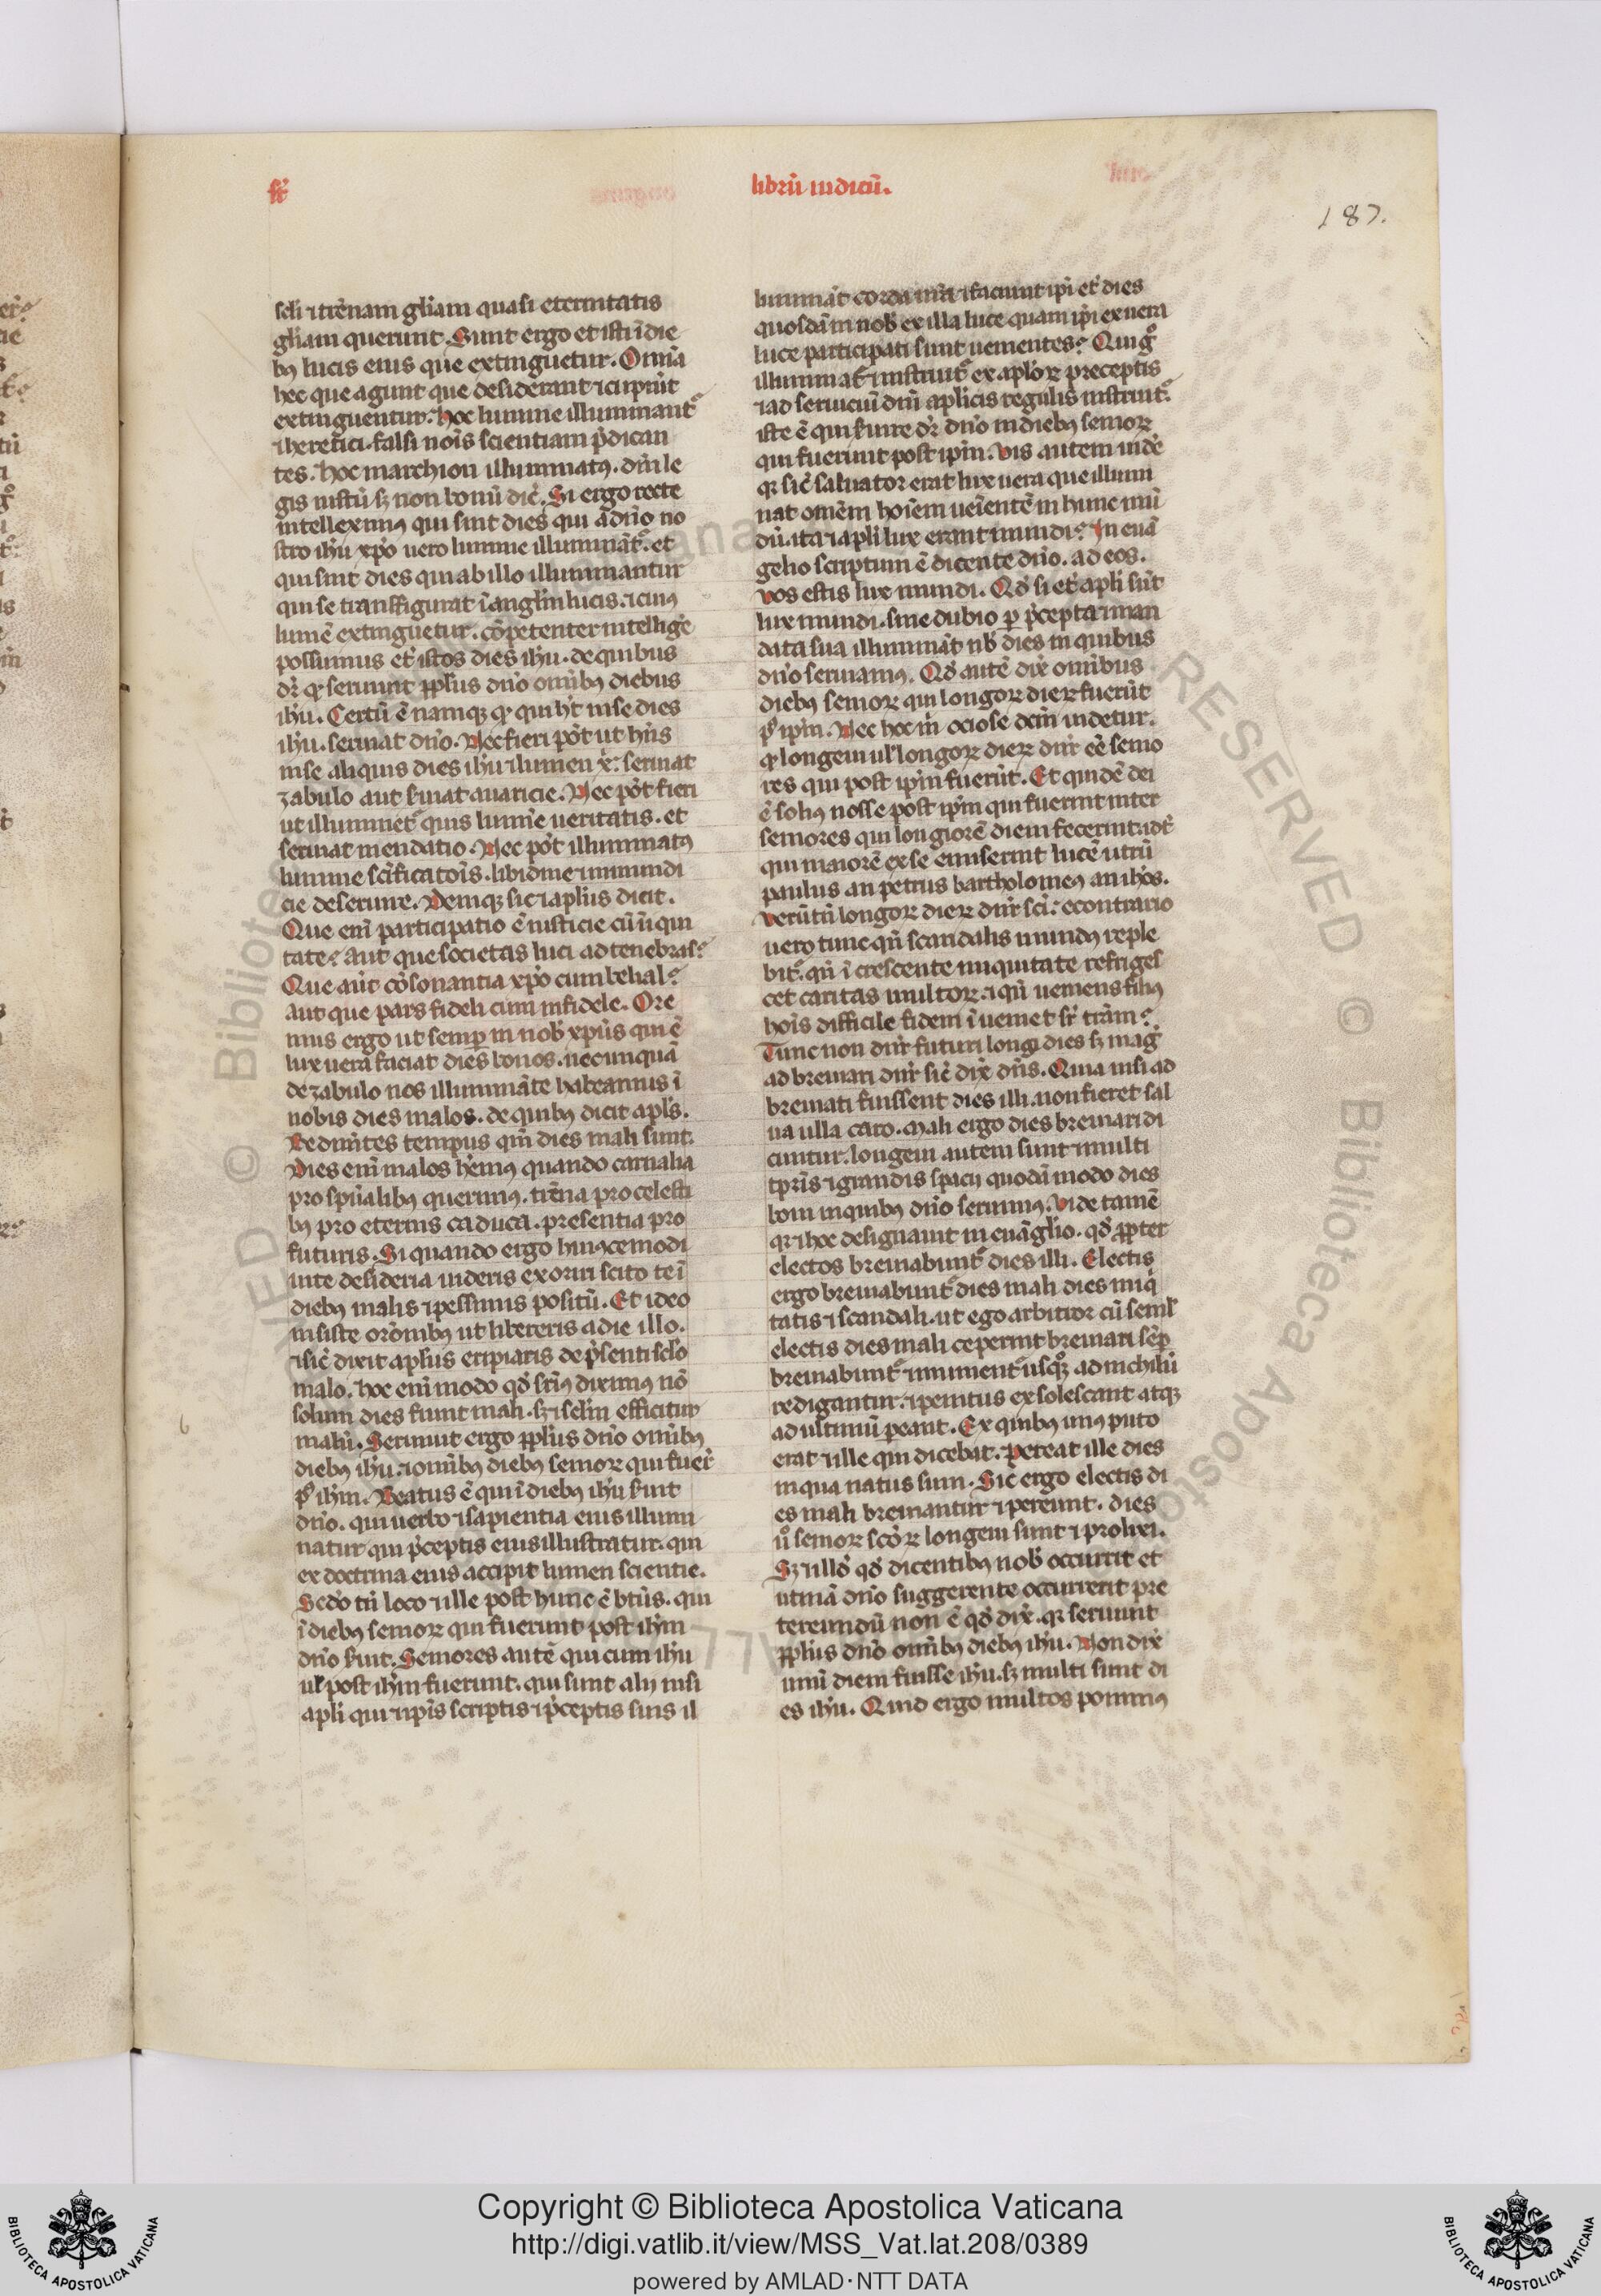 sr̃
librũ iudicũ.
187.
scłi ⁊ tr̃enam gł̃iam quasi eternitatis
gł̃iam querunt. Sunt ergo et isti ĩ die
bꝰ lucis eius que extinguetur. Om̃ia
hec que agunt que desiderant ⁊ cupiũt
extinguentur. hoc lumine illuminant᷑
⁊ heretici. falsi nõis scientiam p̃dican
tes. hoc marchion illuminatꝰ. dñm le
gis iustũ sꝫ non bonũ dic̃. Si ergo recte
intelleximꝰ qui sint dies qui a dño no
stro ihũ xp̃o uero lumine illuminãt᷑. et
qui sint dies qui ab illo illuminantur
qui se transfigurat ĩ angł̃m lucis. ⁊ cuiꝰ
lumẽ extinguetur. cõpetenter intellige᷑
possumus et᷑ istos dies ihũ. de quibus
dr̃ ꝙ seruiunt ppł̃us dño omĩbꝰ diebus
ihũ. Certũ ẽ namqꝫ ꝙ qui ht̃ in se dies
ihũ. seruiat dño. Nec fieri põt ut hñs
in se aliquis dies ihũ ⁊ lumen x̃. seruiat
zabulo aut s̃uiat auaricie. Nec põt fieri
ut illuminet᷑ quis lumĩe ueritatis. et
seruiat mendatio. Nec põt illuminatꝰ
lumine sc̃ificatõis. libidine ⁊ inmundi
cie deseruire. Deniqꝫ sic ⁊ apł̃us dicit.
Que enĩ participatio ẽ iusticie cũ ĩiqui
tate? aut que societas luci ad tenebras?
Que aut̃ cõsonantia xp̃o cum belial?
aut que pars fideli cum infidele. Ore
mus ergo ut semp̱ in nob̃ xp̃us qui ẽ
lux uera faciat dies bonos. nec unquã
de zabulo nos illuminãte habeamus ĩ
nobis dies malos. de quibꝰ dicit apł̃s.
Redim̃tes tempus qm̃ dies mali sunt.
Dies enĩ malos hẽmꝰ quando carnalia
pro spũalibꝰ querimꝰ. tr̃ena pro celesti
bꝰ pro eternis caduca. presentia pro
futuris. Si quando ergo huiꝰcemodi
in te desideria uideris exoriri scito te ĩ
diebꝰ malis ⁊ pessimis positũ. Et ideo
insiste orõnibꝰ ut libereris a die illo.
⁊ sic̃ dixit apł̃us eripiaris de p̃senti scł̃o
malo. hoc enĩ modo qd̃ suꝑiꝰ diximꝰ nõ
solum dies fiunt mali. sꝫ ⁊ scł̃m efficitur
malũ. Seruiuit ergo ppł̃us dño omĩbꝰ
diebꝰ ihũ. ⁊ omĩbꝰ diebꝰ senioꝝ qui fuer̃
p᷒ ihm̃. Beatus ẽ qui ĩ diebꝰ ihũ s̃uit
dño. qui uerbo ⁊ sapientia eius illumi
natur qui p̃ceptis eius illustratur. qui
ex doctrina eius accipit lumen scientie.
Sed̃o tñ loco ⁊ ille post hunc ẽ bt̃us. qui
ĩ diebꝰ senioꝝ qui fuerunt post ihm̃
dño s̃uit. Seniores autẽ qui cum ihũ
uł post ihm̃ fuerunt. qui sunt alij nisi
apł̃i qui ⁊ ip̃is scriptis ⁊ p̃ceptis suis il
luminãt corda nr̃a ⁊ faciunt ip̃i et᷑ dies
quosdã in nob̃ ex illa luce quam ip̃i ex uera
luce participati sunt uenientes? Qui ꝯg̊
illuminat᷑ ⁊ instruit᷑ ex apłoꝝ preceptis
⁊ ad seruiciũ dñi apłicis regulis instruit᷑.
iste ẽ qui s̃uire dr̃ dño in diebꝰ senioꝝ
qui fuerunt post ip̃m. Vis autem uide᷑
qꝛ sic̃ saluator erat lux uera que illumi
nat om̃em hoĩem ueĩentẽ in hunc mũ
dũ. ita ⁊ apł̃i lux erant mundi? In euã
gelio scriptum ẽ dicente dño. ad eos.
Vos estis lux mundi. Qd̃ si et᷑ apł̃i sũt
lux mundi. sine dubio ꝑ p̃cepta ⁊ man
data sua illuminãt nb̃ dies in quibus
dño seruiamꝰ. Qd̃ autẽ dix̃ omĩbus
diebꝰ senioꝝ qui longoꝝ dieꝝ fuerũt
p᷒ ip̃m. Nec hoc m̃ ociose dcm̃ uidetur.
ꝙ longeui uł longoꝝ dieꝝ dñr eẽ senio
res qui post ip̃m fuerũt. Et quidẽ dei
ẽ soliꝰ nosse post ip̃m qui fuerint inter
seniores qui longiorẽ diem fecerint. ⁊
qui maiorẽ ex se emiserint lucẽ utrũ
paulus an petrus bartholomeꝰ an iohes.
Verũtñ longoꝝ dieꝝ dñr sc̃i. econtrario
uero tunc qñ scandalis mundꝰ reple
bit᷑. qñ ĩ crescente iniquitate refriges
cet caritas multoꝝ. ⁊ qñ ueniens filiꝰ
hoĩs difficile fidem ĩueniet sr̃ tr̃am?
Tunc non dñr futuri longi dies sꝫ mag̃
ad breuiari dñr sic̃ dix̃ dñs. Quia nisi ad
breuiati fuissent dies illi. non fieret sal
ua ulla caro. Mali ergo dies breuiari di
cuntur. longeui autem sunt ⁊ multi
tp̃ris ⁊ grandis spacij quodã modo dies
boni in quibꝰ dño seruimꝰ. Vide tamẽ
qꝛ ⁊ hoc designauit in euãgł̃io. qd̃ ꝓpter
electos breuiabunt᷑ dies illi. Electis
ergo breuiabunt᷑ dies mali dies iniq̃
tatis ⁊ scandali. ut ego arbitror cũ semł
electis dies mali ceperint breuiari sẽp
breuiabunt᷑ ⁊ minuent᷑ usqꝫ ad nichilũ
redigantur. ⁊ penitus exsolescant atqꝫ
ad ultimũ pereant. Ex quibꝰ unꝰ puto
erat ⁊ ille qui dicebat. Pereat ille dies
in qua natus sum. Sic ergo electis di
es mali breuiantur ⁊ pereunt. dies
ũo senioꝝ scõꝝ longeui sunt ⁊ prolixi.
Sꝫ ⁊ illd̃ qd̃ dicentibꝰ nob̃ occurrit et
utinã dño suggerente occurrerit pre
tereundũ non ẽ qd̃ dix̃. qꝛ seruiunt
ppł̃us dño omĩbꝰ diebꝰ ihũ. Non dix̃
unũ diem fuisse ihũ. sꝫ multi sunt di
es ihũ. Quid ergo multos ponimꝰ
Copyright © Biblioteca Apostolica Vaticana
http://digi.vatlib.it/view/MSS_Vat.lat.208/0389
powered by AMLAD·NTT DATA
BIBLIOTECA APOSTOLICA VATICANA
BIBLIOTECA APOSTOLICA VATICANA